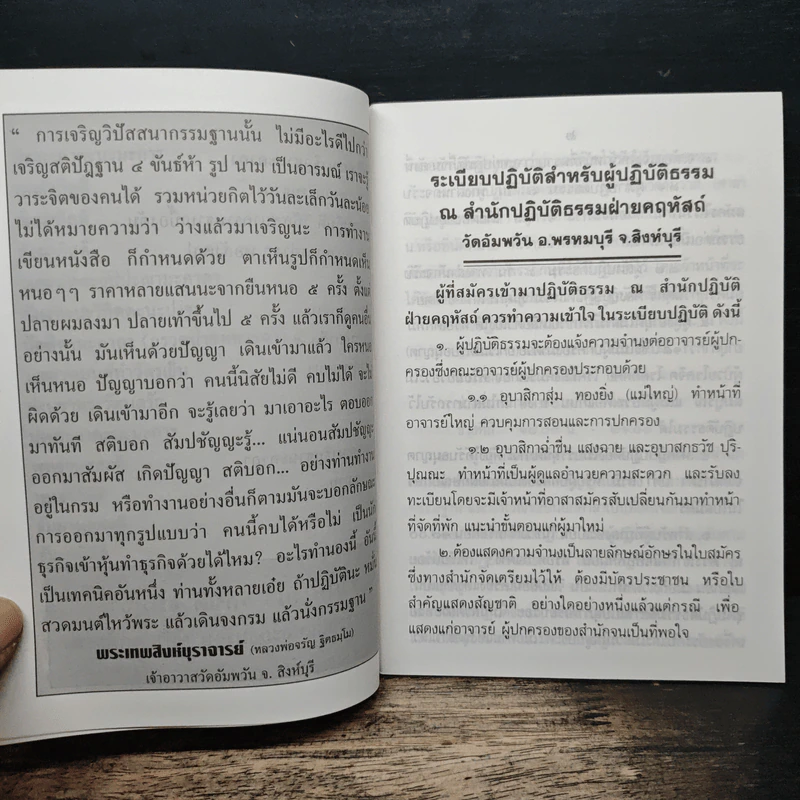 “ การเจริญวิปัสสนากรรมฐานนั้น ไม่มีอะไรดีไปกว่า
เจริญสติปัฎฐาน ๔ ขันธ์ห้า รูป นาม เป็นอารมณ์ เราจะรู้
วาระจิตของคนได้ รวมหน่วยกิตไว้วันละเล็กวันละน้อย
ไม่ได้หมายความว่า ว่างแล้วมาเจริญนะ การทำงาน
เขียนหนังสือ ก็กำหนดด้วย ตาเห็นรูปก็กำหนดเห็น
หนอๆๆ ราคาหลายแสนนะจากยืนหนอ ๕ ครั้ง ตั้งแต่
ปลายผมลงมา ปลายเท้าขึ้นไป ๕ ครั้ง แล้วเราก็ดูคนอื่น
อย่างนั้น มันเห็นด้วยปัญญา เดินเข้ามาแล้ว ใครหนอ
เห็นหนอ ปัญญาบอกว่า คนนี้นิสัยไม่ดี คบไม่ได้ จะไม่
ผิดด้วย เดินเข้ามาอีก จะรู้เลยว่า มาเอาอะไร ตอบออก
มาทันที สติบอก สัมปชัญญะรู้... แน่นอนสัมปชัญญะ
ออกมาสัมผัส เกิดปัญญา สติบอก... อย่างท่านทำงาน
อยู่ในกรม หรือทำงานอย่างอื่นก็ตามมันจะบอกลักษณะ
การออกมาทุกรูปแบบว่า คนนี้คบได้หรือไม่ เป็นนัก
ธุรกิจเข้าหุ้นทำธุรกิจด้วยได้ไหม? อะไรทำนองนี้ อันนี้
เป็นเทคนิคอันหนึ่ง ท่านทั้งหลายเอ๋ย ถ้าปฏิบัตินะ หมั่น
สวดมนต์ไหว้พระ แล้วเดินจงกรม แล้วนั่งกรรมฐาน ”
พระเทพสิงห์บุราจารย์ (หลวงพ่อจรัญ ฐิตธมฺโม)
เจ้าอาวาสวัดอัมพวัน จ. สิงห์บุรี
ระเบียบปฏิบัติสำหรับผู้ปฏิบัติธรรม
ณ สำนักปฏิบัติธรรมฝ่ายคฤหัสถ์
วัดอัมพวัน อ.พรหมบุรี จ.สิงห์บุรี
ผู้ที่สมัครเข้ามาปฏิบัติธรรม ณ สำนักปฏิบัติ
ฝ่ายคฤหัสถ์ ควรทำความเข้าใจ ในระเบียบปฏิบัติ ดังนี้
๑. ผู้ปฏิบัติธรรมจะต้องแจ้งความจำนงต่ออาจารย์ผู้ปก-
ครองซึ่งคณะอาจารย์ผู้ปกครองประกอบด้วย
๑.๑ อุบาสิกาสุ่ม ทองยิ่ง (แม่ใหญ่) ทำหน้าที่
อาจารย์ใหญ่ ควบคุมการสอนและการปกครอง
๑.๒ อุบาสิกาฉ่ำชื่น แสงฉาย และอุบาสกธวัช ปุริ-
ปุณณะ ทำหน้าที่เป็นผู้ดูแลอำนวยความสะดวก และรับลง
ทะเบียนโดยจะมีเจ้าหน้าที่อาสาสมัครสับเปลี่ยนกันมาทำหน้า
ที่จัดที่พัก แนะนำขั้นตอนแก่ผู้มาใหม่
๒. ต้องแสดงความจำนงเป็นลายลักษณ์อักษรในใบสมัคร
ซึ่งทางสำนักจัดเตรียมไว้ให้ ต้องมีบัตรประชาชน หรือใบ
สำคัญแสดงสัญชาติ อย่างใดอย่างหนึ่งแล้วแต่กรณี เพื่อ
แสดงแก่อาจารย์ ผู้ปกครองของสำนักจนเป็นที่พอใจ